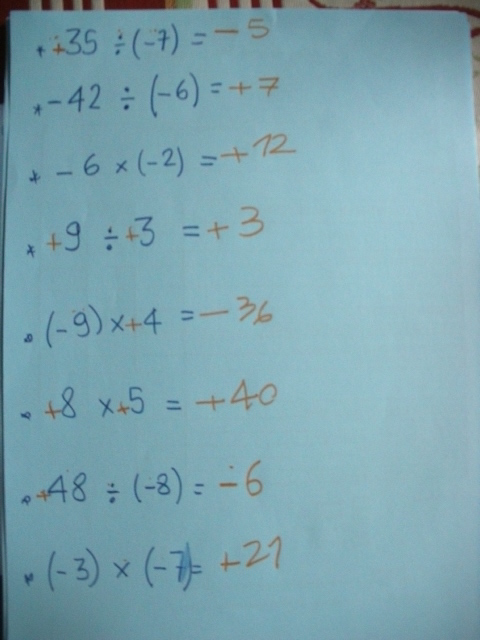 * +35 ÷ (-7) = -5
* -42 ÷ (-6) = +7
* -6 × (-2) = +12
* +9 ÷ +3 = +3
* (-9) × +4 = -36
* +8 × +5 = +40
* +48 ÷ (-8) = -6
* (-3) × (-7) = +21